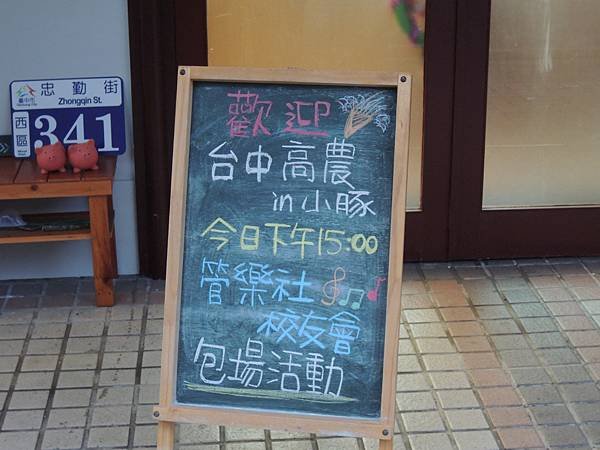 臺中市
Taichung City
忠勤街
Zhongqin St.
西區
341
歡迎
台中高農
in小豚
今日下午15:00
管樂社
校友會
包場活動